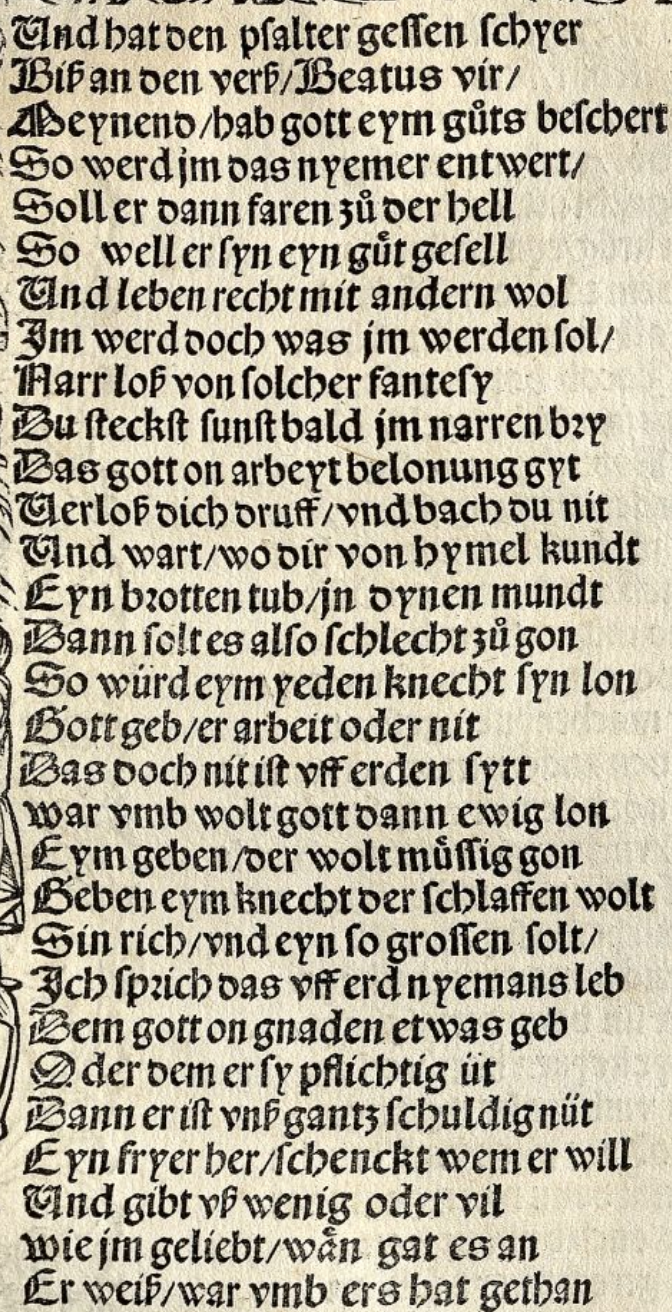 Und hat den psalter gessen schyer
Biß an den verß/Beatus vir/
Meynend/hab gott eym gůts beschert
So werd jm das nyemer entwert/
Soll er dann faren zů der hell
So well er syn eyn gůt gesell
Und leben recht mit andern wol
Jm werd doch was jm werden sol/
Narr loß von solcher fantesy
Du steckst sunst bald jm narren bry
Das gott on arbeyt belonung gyt
Verloß dich druff/vnd bach du nit
Und wart/wo dir von hymel kundt
Eyn brotten tub/jn dynen mundt
Dann solt es also schlecht zů gon
So würd eym yeden knecht syn lon
Gott geb/er arbeit oder nit
Das doch nit ist vff erden sytt
war vmb wolt gott dann ewig lon
Eym geben/der wolt můssig gon
Geben eym knecht der schlaffen wolt
Sin rich/vnd eyn so grossen solt/
Jch sprich das vff erd nyemans leb
Dem gott on gnaden etwas geb
Oder dem er sy pflichtig üt
Dann er ist vnß gantz schuldig nüt
Eyn fryer her/schenckt wem er will
Und gibt vß wenig oder vil
wie jm geliebt/wån gat es an
Er weiß/war vmb ers hat gethan